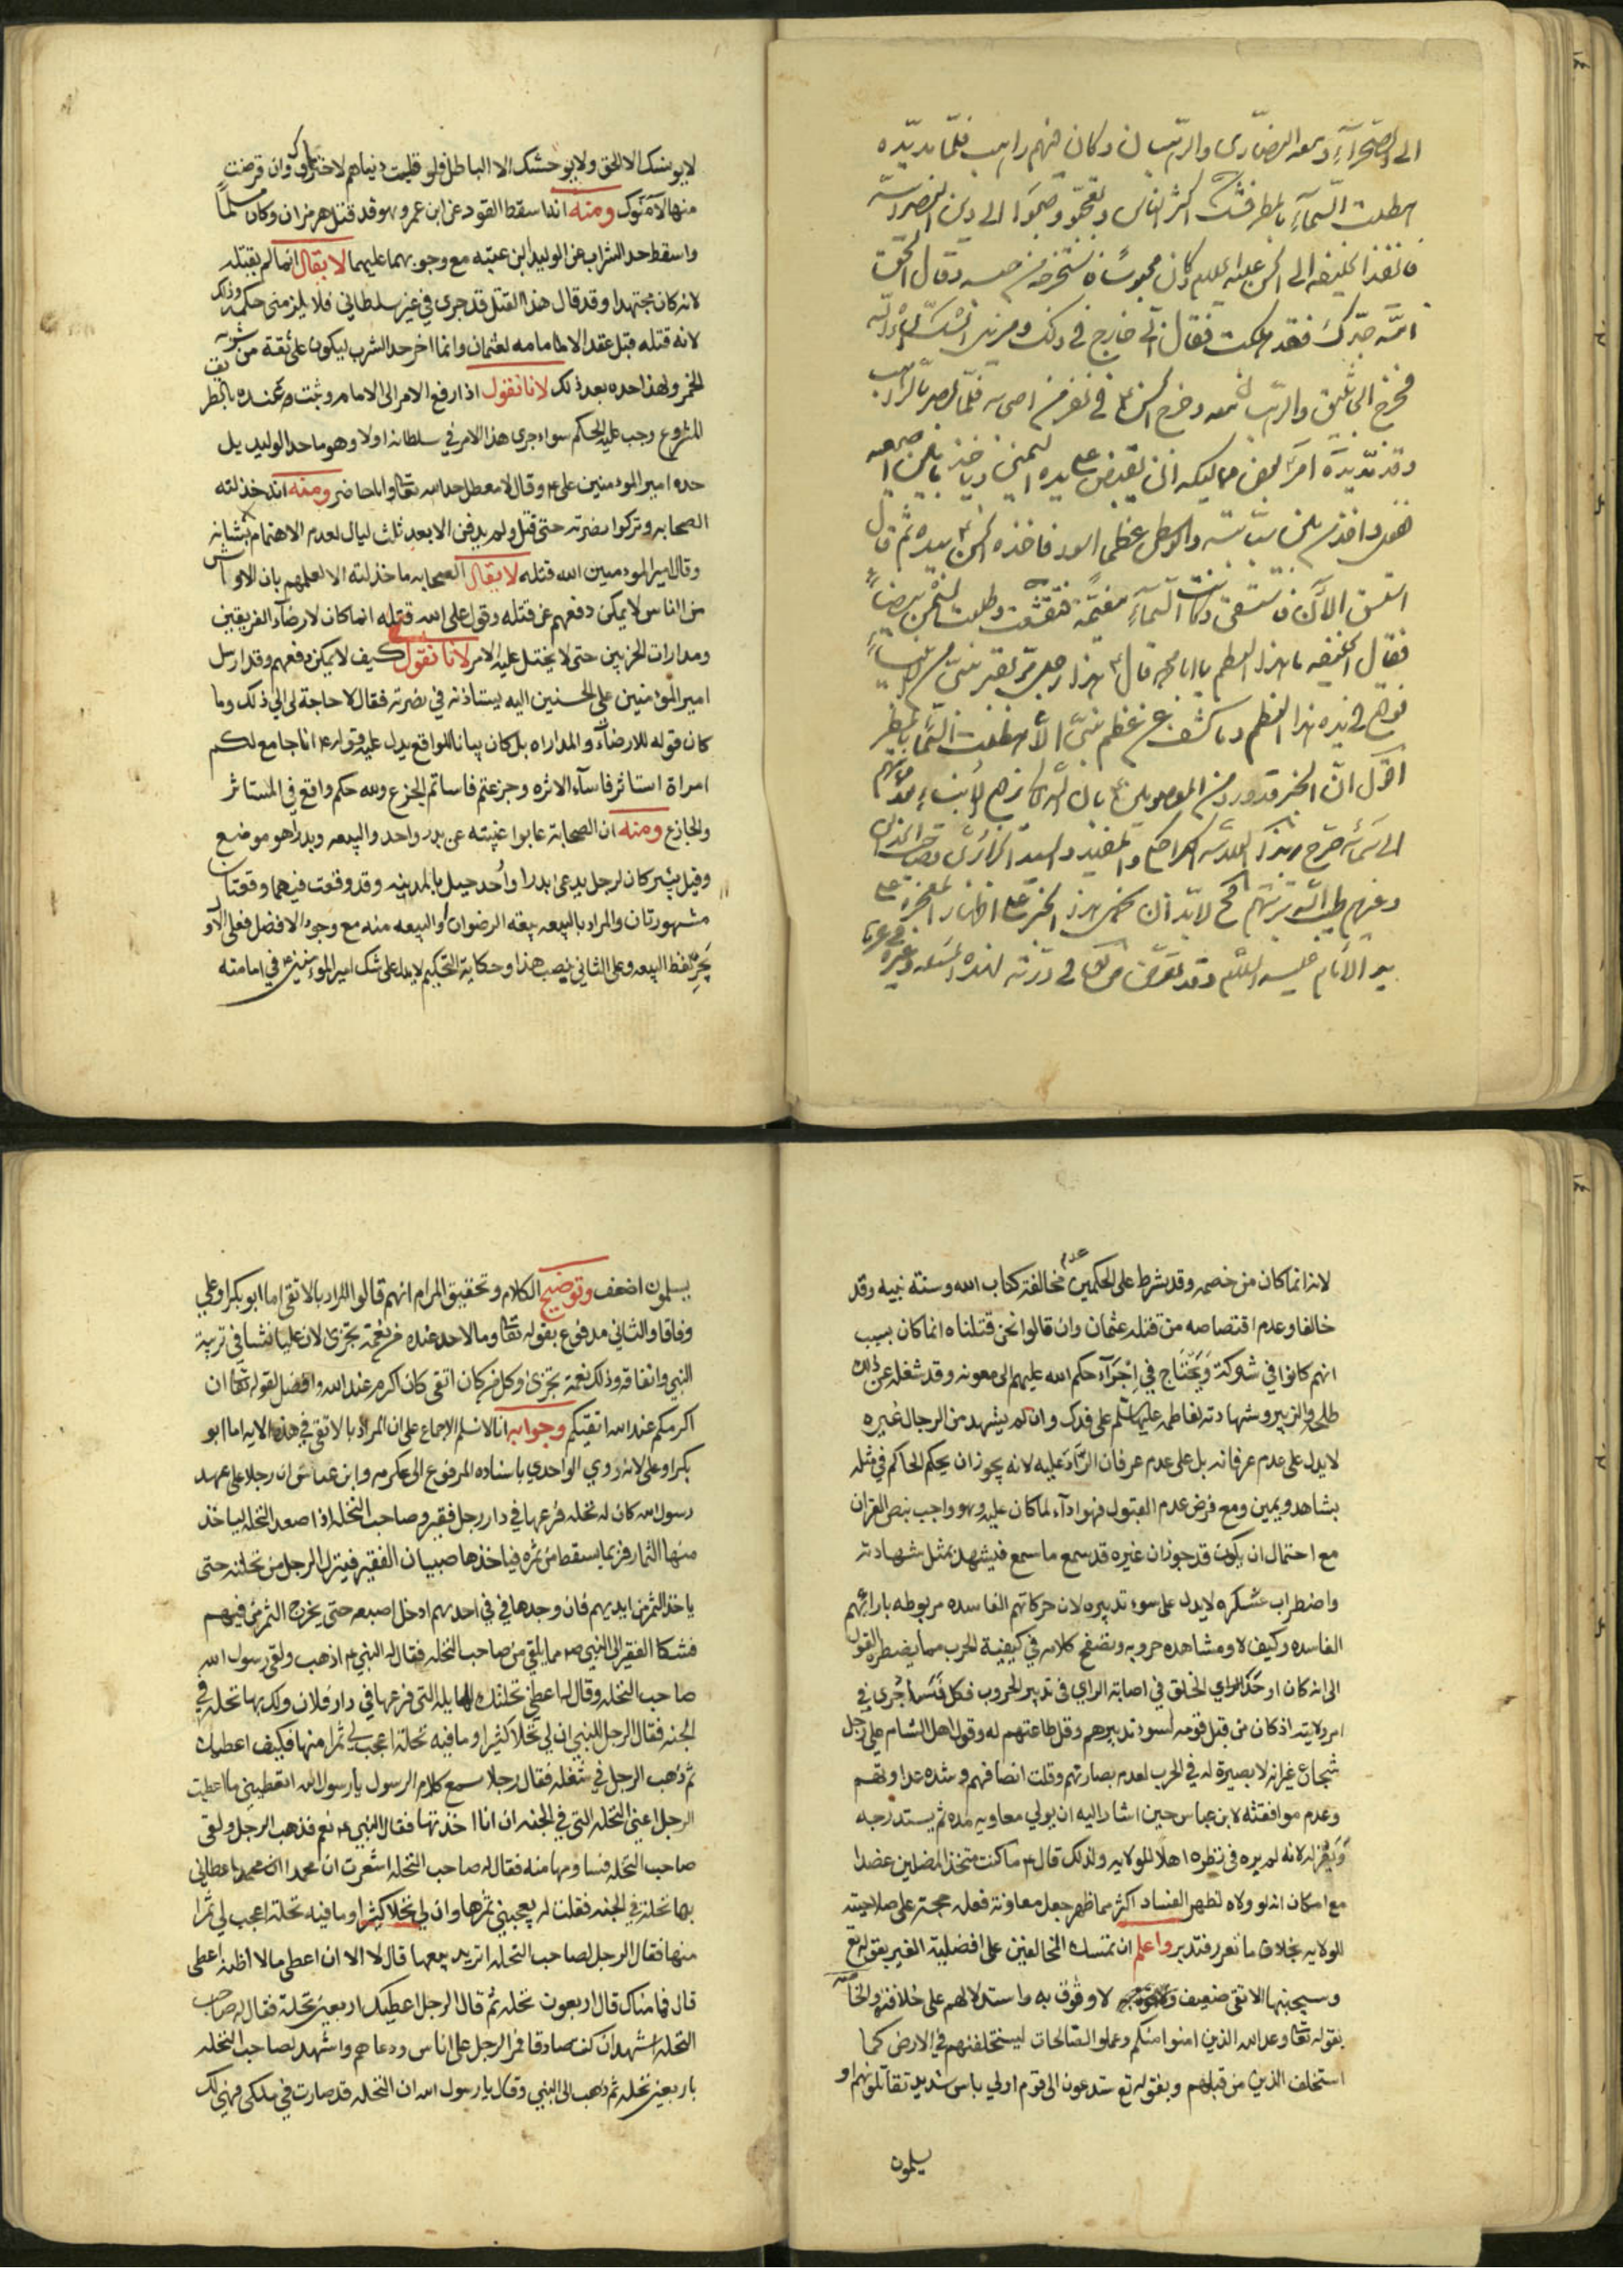 الى الصحراء ومعه النصارى والرهبان وكان فيهم راهب فلما مد يده
هطلت السماء بالمطر فشك اكثر الناس وتعجبوا وصبوا الى دين النصرانية
فانفذ الخليفة الى الحسن عليه السلام وكان محبوسا فاستخرجه من حبسه وقال الحق
امة جدك فقد هلكت فقال اني خارج في ومزيل الشك ان شاء الله
فخرج الجاثليق والرهبان معه وخرج الحسن في نفر من اصحابه فلما بصر بالراهب
وقد مد يده امر بعض مماليكه ان يقبض على يده اليمنى وياخذ ما بين اصبعيه
ففعل واخذ من بين سبابتيه والوسطى عظما اسود فاخذه الحسن بيده ثم قال
استسق الآن فاستسقى وكانت السماء مغيمة فتقشعت وطلعت الشمس بيضاء
فقال الخليفة ما هذا العظم يا ابا محمد قال هذا رجل مر بقبر نبي من الانبياء
فوقع في يده هذا العظم وما كشف عن عظم نبي الا هطلت السماء بالمطر
اقول ان الخبر قد ورد من المعصومين بان الله
الى سمائه صرح بهذا الكراجكي والمفيد والسيد
وغيرهم طيب الله تربتهم فح لابد ان يحمل هذا الخبر على اظهار المعجزة
عليه السلام وقد
لا يونسك الا الحق ولا يوحشك الا الباطل فلو قبلت دنياهم لاحبوك وان قرضت
منها لآمنوك ومنه انه اسقط القود عن ابن عمر وهو قد قتل هرمزان وكان مسلما
واسقط حد الشراب عن الوليد ابن عتبه مع وجوبهما عليهما لا يقال انما لم يقتله
لانه كان مجتهدا وقد قال هذا القتل قد جرى في غير سلطاني فلا يلزمني حكمه وذلك
لانه قتله قبل عقد الامامه لعثمان وانما اخر حد الشرب ليكون على ثقة من شربه
الخمر ولهذا حده بعد ذلك لانا نقول اذا رفع الامر الى الامام وثبت عنده بالطريق
المشروع وجب عليه الحكم سواء جرى هذا الامر في سلطانه اولا وهو ما حد الوليد بل
حده امير المؤمنين علي ع وقال لا يعطل حد الله تعالى وانا حاضر ومنه انه خذلته
الصحابه وتركوا نصرته حتى قتل ولم يدفن الا بعد ثلث ليال لعدم الاهتمام بشانه
وقال امير المؤمنين الله قتله لا يقال الصحابه ما خذلته الا لعلمهم بان الاوباش
من الناس لا يمكن دفعهم عن قتله وقول علي الله قتله انما كان لارضاء الفريقين
ومدارات الحزبين حتى لا يختل عليه الامر لانا نقول كيف لا يمكن دفعهم وقد ارسل
امير المؤمنين علي الحسنين اليه يستاذنه في نصرته فقال لا حاجة لي الى ذلك وما
كان قوله للارضاء والمداراه بل كان بيانا للواقع يدل عليه قوله ع انا جامع لكم
امراة استاثر فاساء الاثره وجزعتم فاساتم الجزع ولله حكم واقع في المستاثر
والجازع ومنه ان الصحابة عابوا غيبته عن بدر واحد والبيعه وبدر اهو موضع
وقيل بئر كان لرجل يدعى بدرا وأحد جبل بالمدينه وقد وقعت فيهما وقعتان
مشهورتان والمراد بالبيعه بيعة الرضوان والبيعه منه مع وجود الافضل فعلى الاول
يجر لفظ البيعه وعلى الثاني ينصب هذا وحكاية التحكيم لا يدل على شك امير المؤمنين ع في امامته
لانه انما كان من خصمه وقد شرط على الحكمين عدم مخالفة كتاب الله وسنة نبيه وقد
خالفا وعدم اقتصاصه من قتله عثمان وان قالوا نحن قتلناه انما كان بسبب
انهم كانوا في شوكة ويحتاج في اجراء حكم الله عليهم الى معونه وقد شغله عن ذلك
طلحه والزبير وشهادته لفاطمه عليها السلم على فدك وان لم يشهد من الرجال غيره
لا يدل على عدم عرفانه بل على عدم عرفان الراد عليه لانه يجوز ان يحكم الحاكم في مثله
بشاهد ويمين ومع فرض عدم القبول فهو اداء لما كان عليه وهو واجب بنص القران
مع احتمال ان يكون قد جوز ان غيره قد سمع ما سمع فيشهد بمثل شهادته
واضطراب عسكره لا يدل على سوء تدبيره لان حركاتهم الفاسده مربوطه بارائهم
الفاسده وكيف لا ومشاهده حروبه وتصفح كلامه في كيفية الحرب مما يضطره القول
الى انه كان اوحدي الخلق في اصابة الراي في تدبير الحروب فكل فساد جرى في
امر ولايته اذ كان من قبل قومه لسوء تدبيرهم وقل طاعتهم له وقول اهل الشام علي رجل
شجاع غير انه لا بصيرة له في الحرب لعدم بصارتهم وقلت انصافهم وشده عداوتهم
وعدم موافقته لابن عباس حين اشار اليه ان يولي معاويه مده ثم يستدرجه
ويعزله لانه لم يره في نظره اهلا للولايه ولذلك قال ع ما كنت متخذ المضلين عضدا
مع امكان انه لو ولاه لظهر الفساد اكثر مما ظهر جعل معاوية فعله حجة على صلاحيته
للولايه بخلاف ما تقرر فتدبر واعلم ان تمسك المخالفين على افضلية الغير بقوله تع
وسيجنبها الاتقى ضعيف لا وثوق به واستدلالهم على خلافة الخلفاء
بقوله تعالى وعد الله الذين امنوا منكم وعملوا الصالحات ليستخلفنهم في الارض كما
استخلف الذين من قبلهم وبقوله تع ستدعون الى قوم اولي باس شديد تقاتلونهم او
يسلمون
يسلمون اضعف وتوضيح الكلام وتحقيق المرام انهم قالوا المراد بالاتقى اما ابو بكر او علي
وفاقا والثاني مدفوع بقوله تعالى وما لاحد عنده من نعمة تجزى لان عليا نشا في تربية
النبي وانفاقه وذلك نعمة تجزى وكل من كان اتقى كان اكرم عند الله وافضل لقوله تعالى ان
اكرمكم عند الله اتقيكم وجوابه انا لا نسلم الاجماع على ان المراد بالاتقى في هذه الايه اما ابو
بكر او علي لانه روي الواحدي باسناده المرفوع الى عكرمه وابن عباس ان رجلا على عهد
رسول الله كان له نخله فرعها في دار رجل فقير وصاحب النخله اذا صعد النخله لياخذ
منها الثمار فربما يسقط من ثمره فياخذها صبيان الفقير فينزل الرجل من نخلته حتى
ياخذ الثمر من ايديهم فان وجدها في في احدهم ادخل اصبعه حتى يخرج الثمر من فيهم
فشكا الفقير الى النبي ص مما يلقى من صاحب النخله فقال له النبي ع اذهب ولقى رسول الله
صاحب النخله وقال له اعطني نخلتك المايله التي فرعها في دار فلان ولك بها نخله في
الجنه فقال الرجل للنبي ان لي نخلا كثيرا وما فيه نخلة اعجب لي ثمرا منها فكيف اعطيك
ثم ذهب الرجل في شغله فقال رجل سمع كلام الرسول يا رسول الله اتعطيني ما اعطيت
الرجل اعني النخله التي في الجنه ان انا اخذتها فقال النبي ع نعم فذهب الرجل ولقى
صاحب النخله فساومها منه فقال له صاحب النخله اشعرت ان محمدا اعطاني
بها نخلة في الجنه فقلت له يعجبني ثمرها وان لي نخلا كثيرا وما فيه نخلة اعجب لي ثمرا
منها فقال الرجل لصاحب النخله اتريد بيعها قال لا الا ان اعطى ما لا اظنه اعطى
قال فما مناك قال اربعون نخله ثم قال الرجل اعطيك اربعين نخلة فقال له صاحب
النخله اشهد ان كنت صادقا فمر الرجل على اناس ودعاهم واشهد لصاحب النخله
باربعين نخله ثم ذهب الى النبي وقال يا رسول الله ان النخله قد صارت في ملكي فهي لك